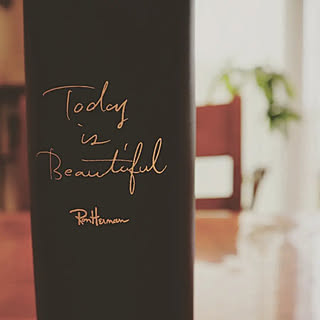 Today
is
Beautiful
Ron Herman